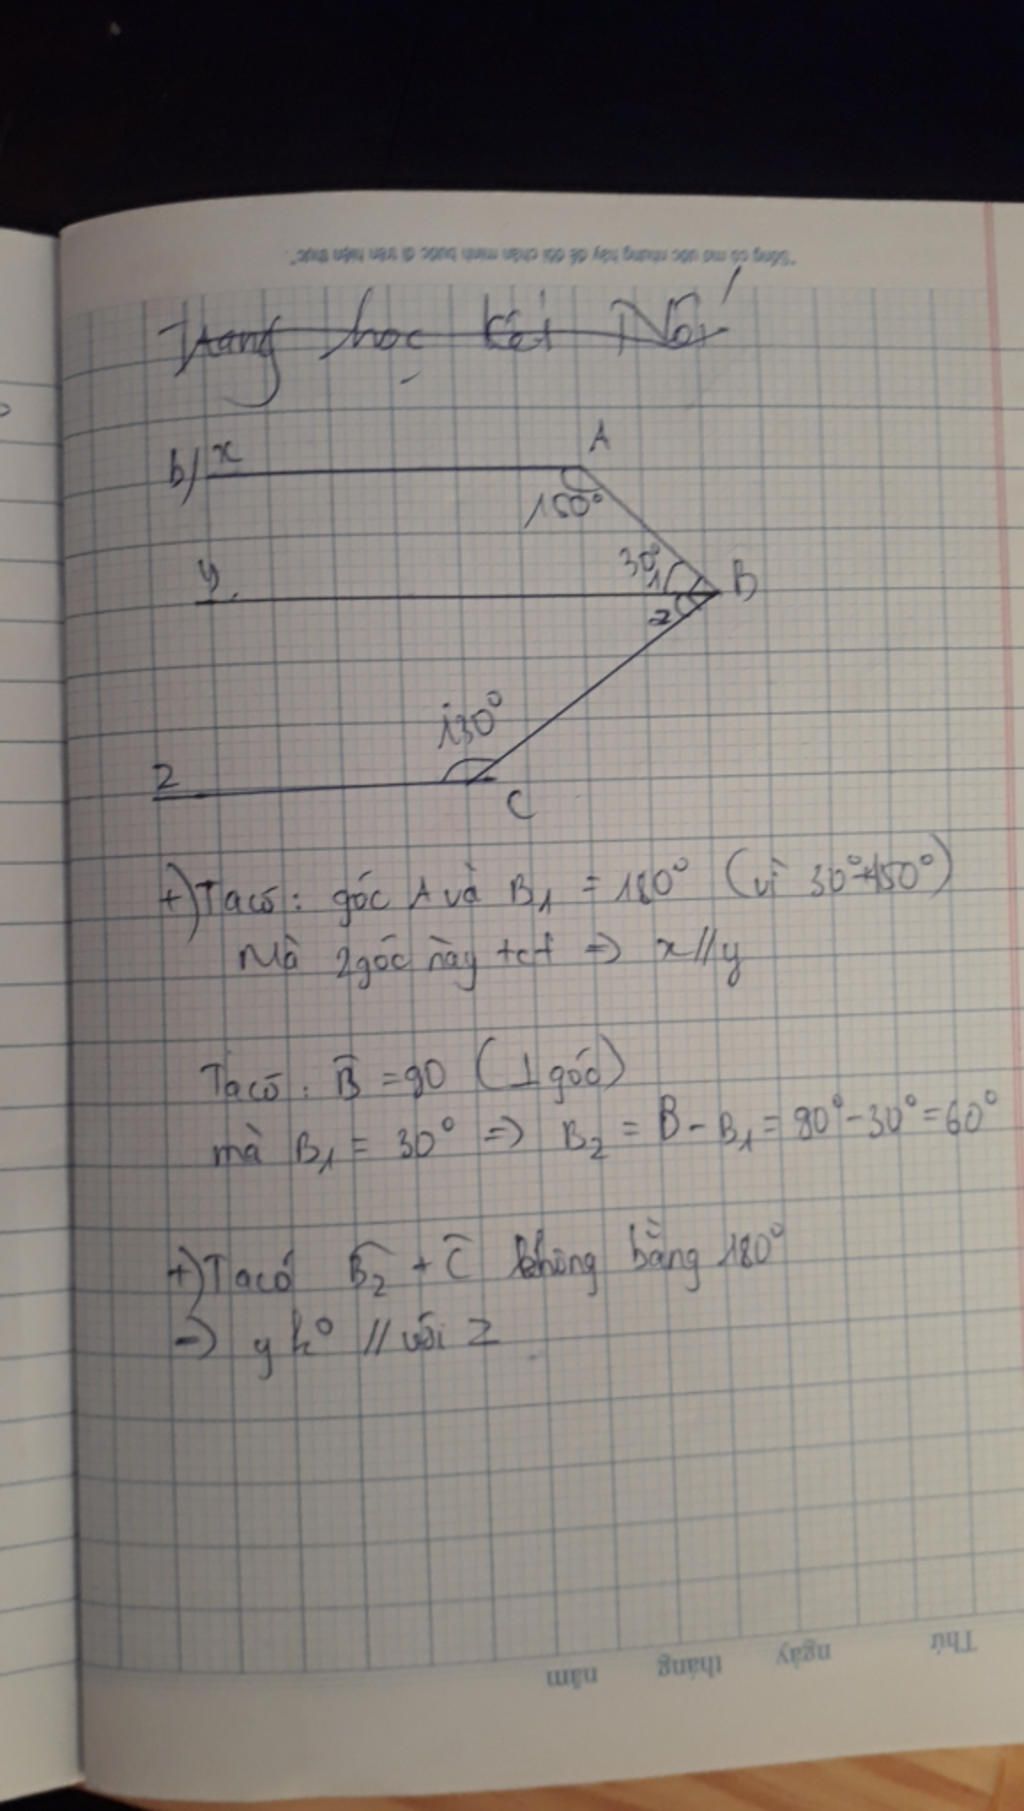 "Sống có mơ ước nhưng hãy để đôi chân mình bước đi trên hiện thực".
Trang học kết Nối
b) x A
150°
y 30° 1 B
2
130°
z C
+) Ta có: góc A và B1 = 180° (vì 30°+150°)
Mà 2 góc này tcf => x//y
Ta có: B = 90 (1 góc)
mà B1 = 30° => B2 = B - B1 = 90° - 30° = 60°
+) Ta có B2 + C không bằng 180°
=> y ko // với z
Thứ ngày tháng năm